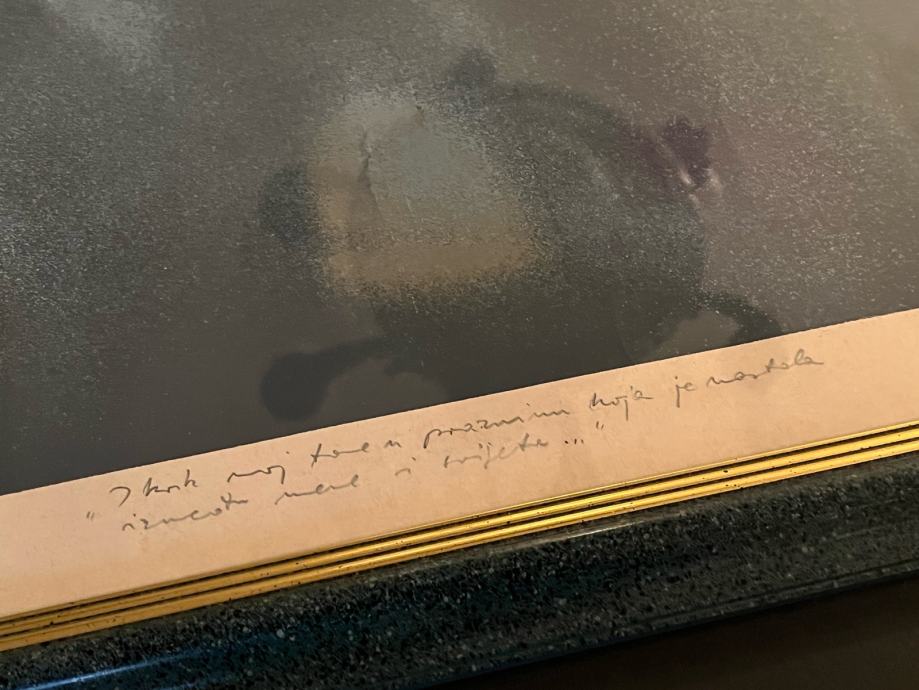 "I krik moj tone u prazninu koja je nastala
između mene i svijeta..."